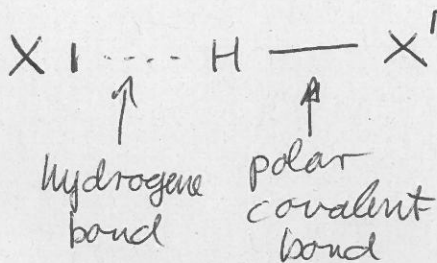 X | ···· H — X'
hydrogene
bond
polar
covalent
bond